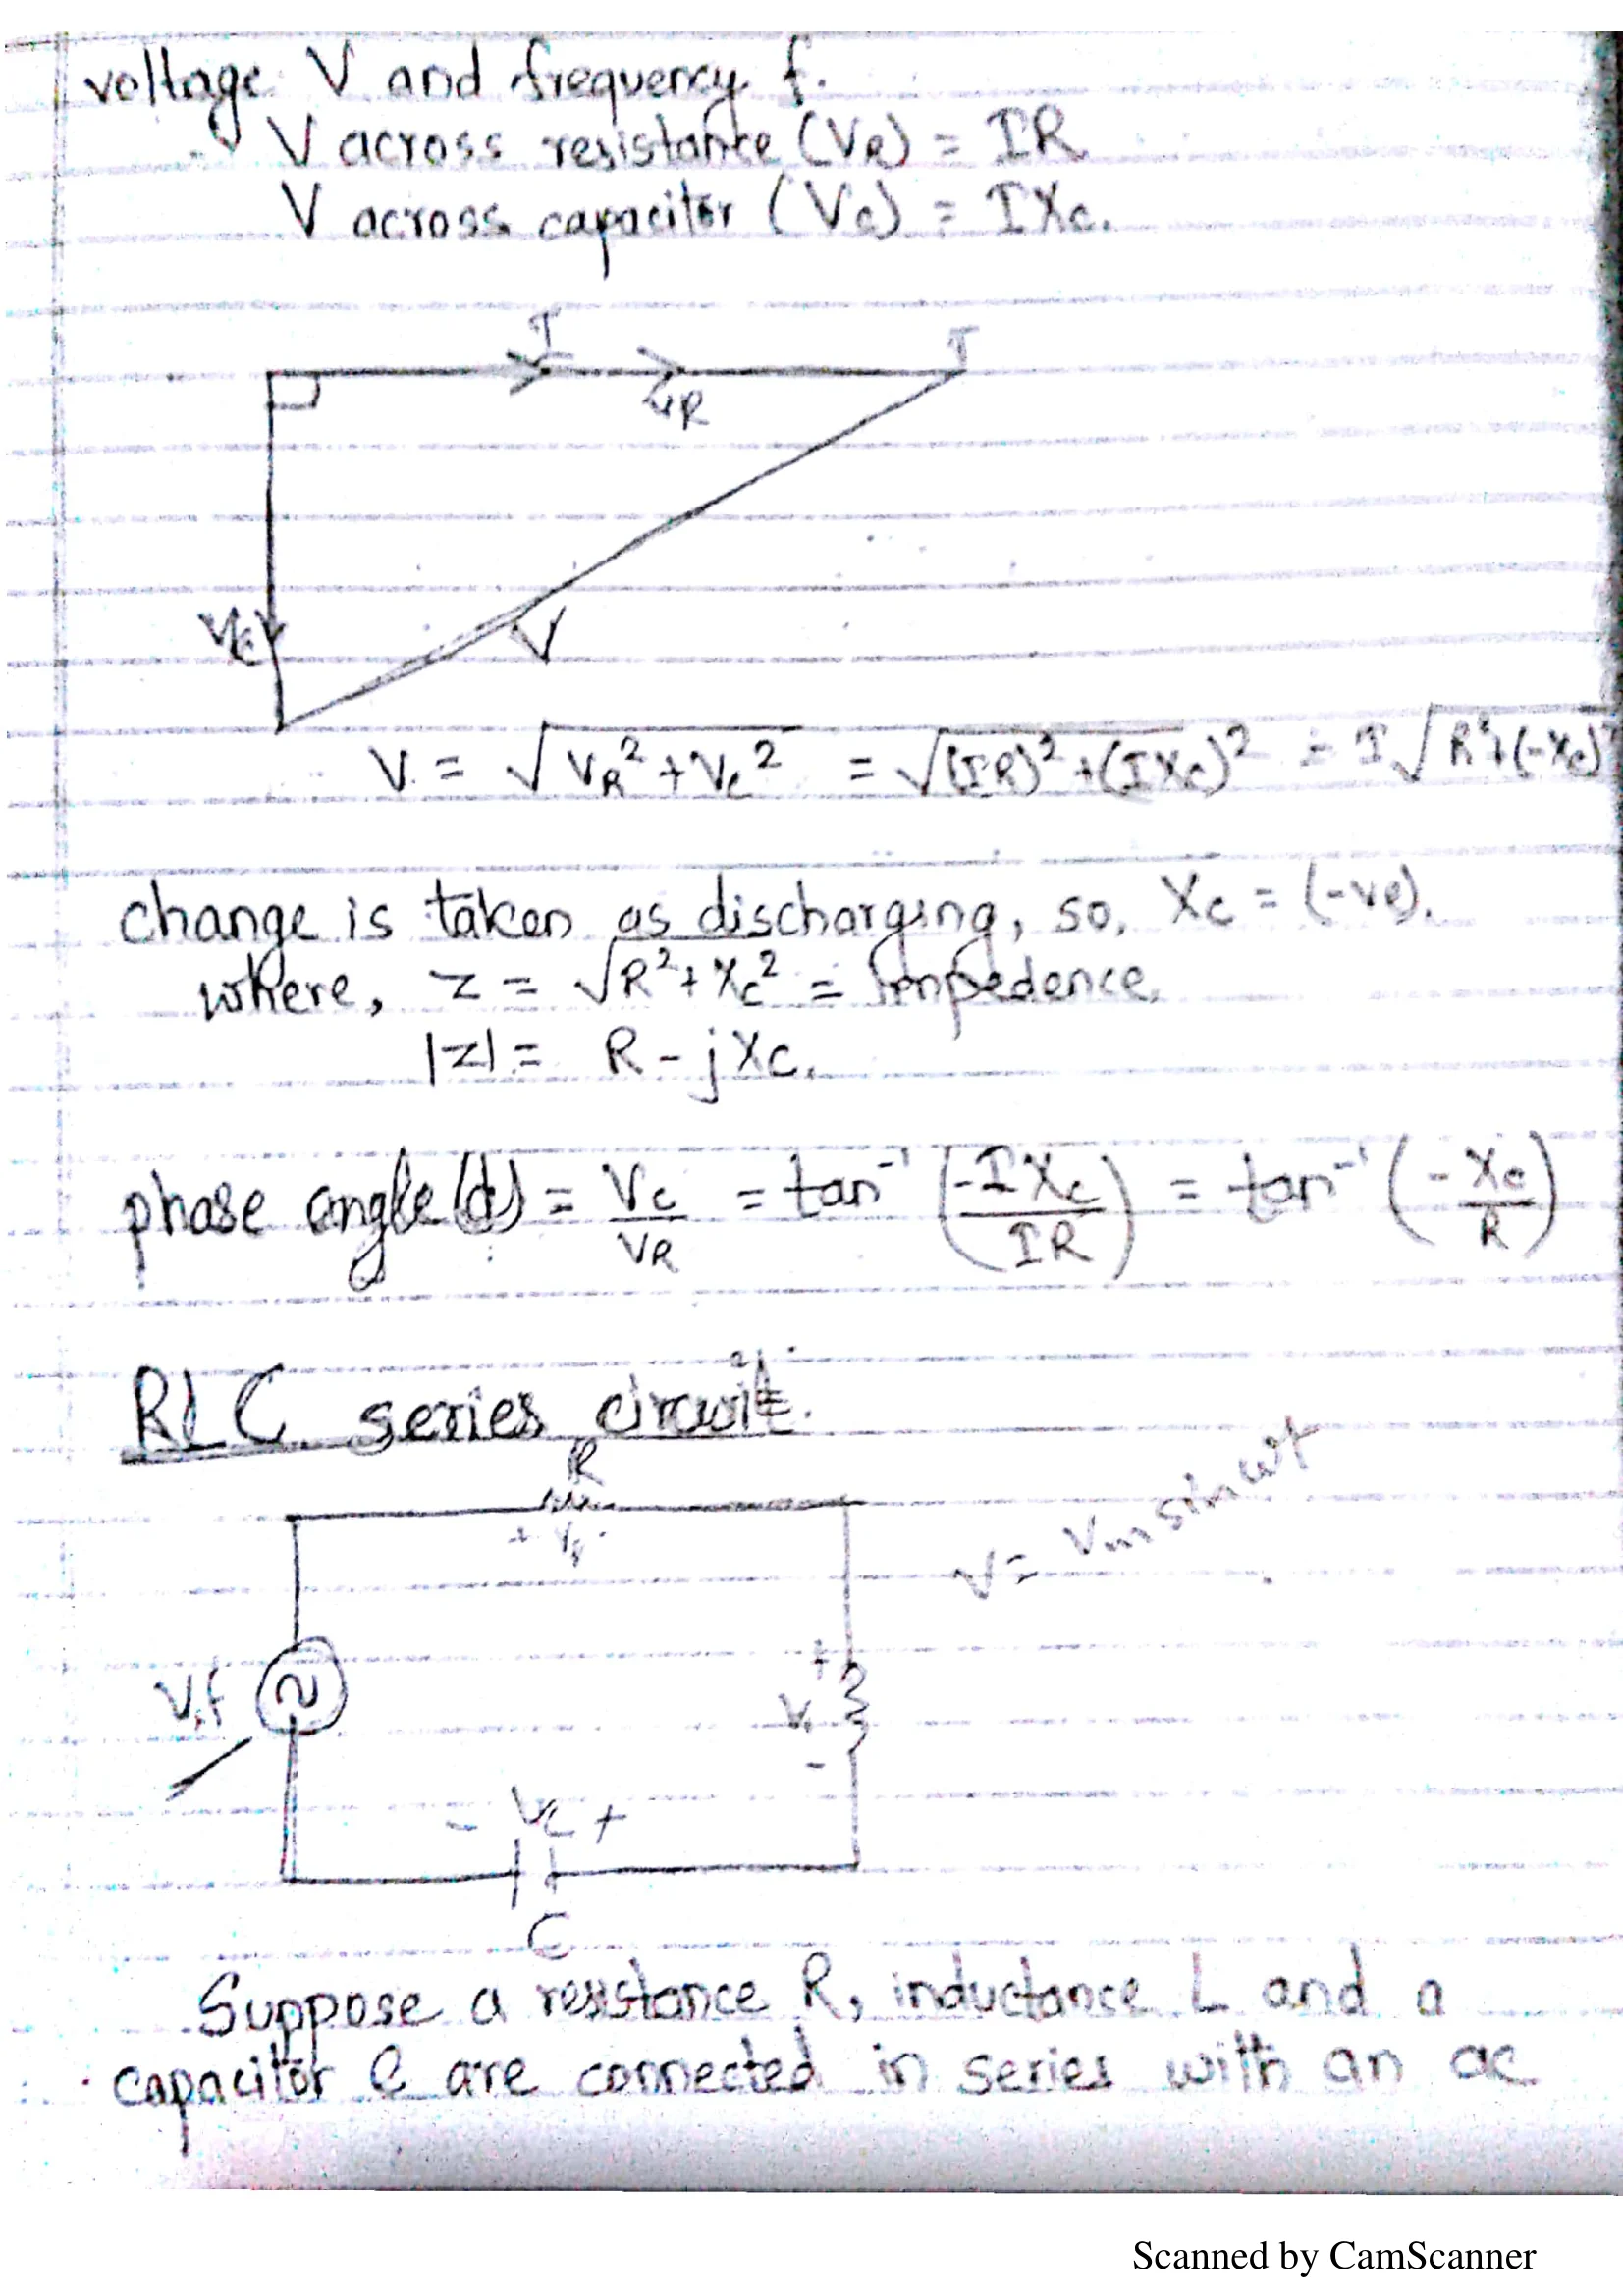 voltage V and frequency f.
V across resistance (VR) = IR
V across capacitor (Vc) = IXc.
I
I
VR
Vc
V
V = √VR² + Vc² = √(IR)² + (IXc)² = I√R² + (-Xc)²
change is taken as discharging, so, Xc = (-ve).
where, z = √R² + Xc² = Impedence.
|z| = R - jXc.
phase angle(ϕ) = Vc/VR = tan⁻¹ (-IXc/IR) = tan⁻¹ (-Xc/R)
RLC series circuit.
R
+ -
V = Vm sin wt
+
V,f
V
-
- Vc +
C
Suppose a resistance R, inductance L and a
capacitor C are connected in series with an ac
Scanned by CamScanner